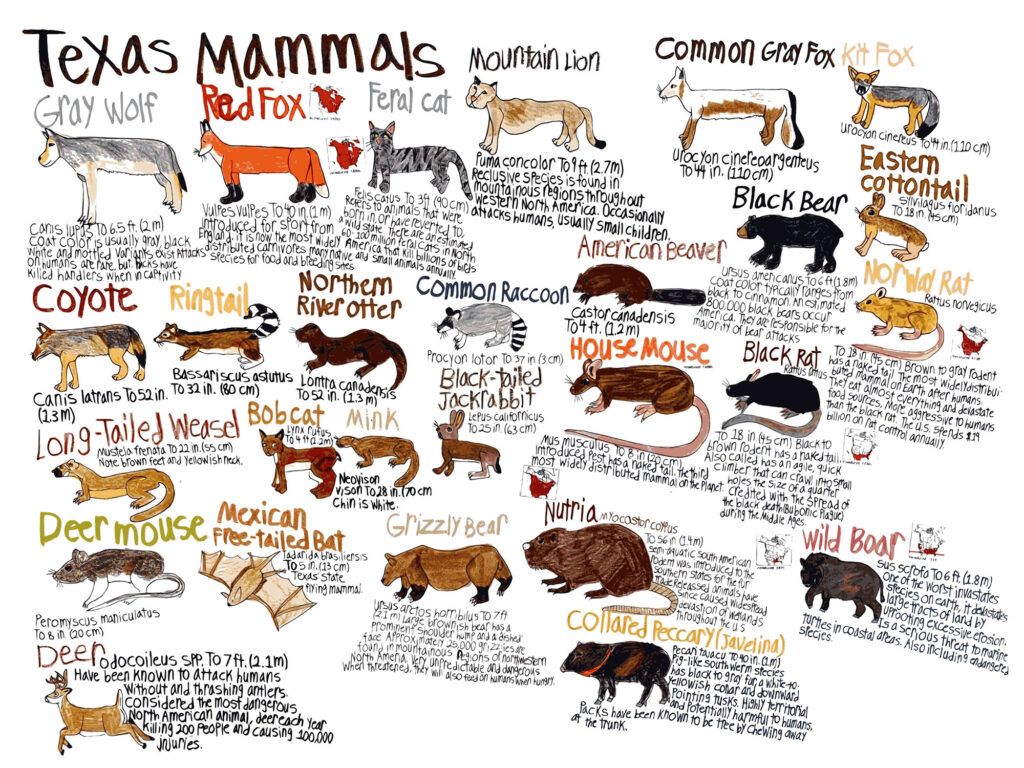 Texas Mammals
Gray Wolf
Canis lupus To 6.5 ft. (2 m)
Coat color is usually gray, black
white and mottled variants exist Attacks
on humans are rare, but packs have
killed handlers when in captivity
Red Fox
Vulpes Vulpes To 40 in. (1 m)
introduced for sport from
England, it is now the most widely
distributed carnivores many native and
species for food and breeding sites
Feral cat
Felis Catus To 3ft (90 cm)
Refers to animals that were
born in, or have reverted to,
a wild state. There are an estimated
60-100 million Feral Cats in North
America that kill billions of birds
small animals annually.
Mountain Lion
Puma concolor To 9 ft (2.7m)
Reclusive species is found in
mountainous regions throughout
Western North America. Occasionally
attacks humans, usually small children.
Common Gray Fox
Urocyon cinereoargenteus
To 44 in. (110 cm)
Kit Fox
Urocyon cinereus To 44 in. (110 cm)
Eastern
Cottontail
Sylvilagus floridanus
To 18 in. (45 cm)
Black Bear
Ursus americanus To 6 ft (1.8m)
Coat color typically ranges from
black to cinnamon. An estimated
800.000 black bears occur
America. They are responsible for the
majority of bear attacks
American Beaver
Castor canadensis
To 4 ft. (1.2 m)
Norway Rat
Rattus norvegicus
To 18 in. (45 cm) Brown to gray rodent
has a naked tail. The most widely distribui-
buted mammal on Earth after humans.
They eat almost everything and devastate
food sources. More aggressive to humans
than the black rat. The U.S. spends $19
billion on rat control annually.
Coyote
Canis latrans To 52 in.
(1.3 m)
Ringtail
Bassariscus astutus
To 32 in. (80 cm)
Northern
River otter
Lontra canadensis
To 52 in. (1.3 m)
Common Raccoon
Procyon lotor to 37 in (3 cm)
House Mouse
Mus musculus To 8 in. (20 cm)
introduced Pest has a naked tail. the third
most widely distributed mammal on the Planet.
Black Rat
Rattus rattus
To 18 in (45 cm) Black to
brown rodent has a naked tail.
Also called has an agile, quick
climber that can crawl into small
holes the size of a quarter
Credited with the spread of
the black death (Bubonic Plague)
during the Middle Ages.
Long-Tailed Weasel
Mustela frenata To 22 in. (55 cm)
Note brown feet and yellowish neck.
Bobcat
Lynx Rufus
To 4 ft (1.2m)
Mink
Neovison
vison To 28 in. (70 cm
Chin is white.
Black-tailed
Jackrabbit
Lepus californicus
To 25 in. (63 cm)
Deer mouse
Peromyscus maniculatus
To 8 in. (20 cm)
Mexican
Free-tailed Bat
Tadarida brasiliensis
To 5 in. (13 cm)
Texas state
flying mammal.
Grizzly Bear
Ursus arctos horribilus To 7 ft
(2.1 m) Large brownish bear has a
prominent shoulder hump and a dished
face. Approximately 25,000 grizzlies are
found in mountainous regions of northwestern
North America. Very unpredictable and dangerous
when threatened, they will also feed on humans when hungry.
Nutria
Myocastor coypus
To 56 in (1.4 m)
semi-aquatic South American
rodent was introduced to the
southern states for the fur
trade. Released animals have
since caused widespread
devastion of wetlands
throughout the U.S
Wild Boar
sus scrofa To 6 ft. (1.8m)
One of the worst invastates
species on earth, it devastates
large tracts of land by
uprooting excessive erosion.
Is a serious threat to marine
turtles in coastal areas. Also including endangered
species.
Deer
odocoileus SPP. To 7 ft. (2.1 m)
Have been known to attack humans
Without and thrashing antlers.
Considered the most dangerous
North American animal, deer each year
killing 200 people and causing 100,000
injuries.
Collared Peccary (Javelina)
Pecari tajacu To 40 in. (1 m)
Pig-like south werm species
has black to gray fur a white-to-
yellowish collar and downward
pointing tusks. Highly territorial
and potentially harmful to humans.
Packs have been known to be tree by chewing away
at the trunk.